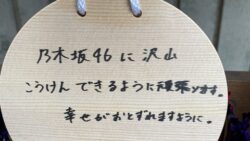 乃木坂46に沢山
こうけんできるように頑張ります。
幸せがおとずれますように。